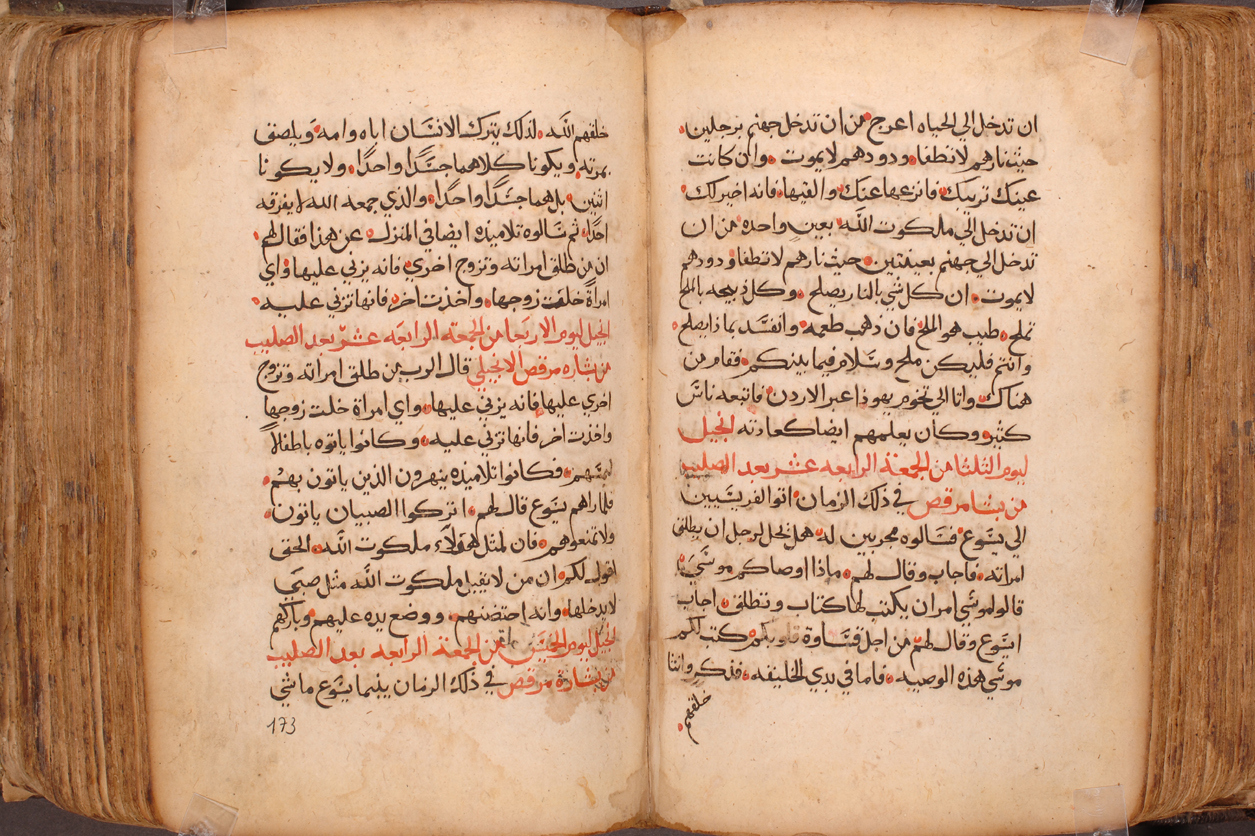 ان تدخل الي الحياه اعرج من ان تدخل جهنم برجلين
حيث نارهم لا تطفا ودودهم لا يموت وان كانت
عينك تريبك فانزعها عنك والقيها فانه اخير لك
ان تدخل الي ملكوت الله بعين واحده من ان
تدخل الي جهنم بعينتين حيث نارهم لا تطفا ودودهم
لا يموت ان كل شي بالنار يصلح وكل ذبيحه بالملح
تملح طيب هو الملح فان ذهب طعمه وانفسد بماذا يصلح
وانتم فليكن ملح وسلام فيما بينكم فقام من
هناك واتا الي تخوم يهوذا عبر الاردن فاتبعه ناس
كثير وكان يعلمهم ايضا كعادته انجيل
ليوم الثلثا من الجمعة الرابعه عشر بعد الصليب
من بشارة مرقص في ذلك الزمان اتوا الفريسيين
الي يسوع فسالوه مجربين له هل يحل لرجل ان يطلق
امراته فاجاب وقال لهم ماذا اوصاكم موسي
قالوا موسي امر ان يكتب لها كتاب وتطلق اجاب
ايسوع وقال لهم من اجل قساوة قلوبكم كتب لكم
موسي هذه الوصيه فاما في بدي الخليقه فذكر وانثا
خلقهم
خلقهم الله لذلك يترك الانسان اباه وامه ويلصق
بمرته ويكونا كلاهما جسدا واحدا ولا يكونا
اثنين بل هما جسدا واحدا والذي جمعه الله لا يفرقه
احدا ثم سالوه تلاميذه ايضا في المنزل عن هذا فقال لهم
ان من طلق امراته وتزوج اخري فانه يزني عليها واي
امراة خلفت زوجها واخذت اخر فانها تزني عليه
انجيل ليوم الاربعا من الجمعة الرابعه عشر بعد الصليب
من بشاره مرقص الانجيلي قال الرب من طلق امراته وتزوج
اخري عليها فانه يزني عليها واي امراة خلت زوجها
واخذت اخر فانها تزني عليه وكانوا ياتوه باطفالا
ليمسهم فكانوا تلاميذه ينهرون الذين ياتون بهم
فلما راهم يسوع قال لهم اتركوا الصبيان ياتون
ولا تمنعوهم فان لمثل هولاء ملكوت الله الحق
اقول لكم ان من لا يقبل ملكوت الله مثل صبي
لا يدخلها وانه احتضنهم ووضع يده عليهم وباركهم
انجيل ليوم الخميس من الجمعة الرابعه بعد الصليب
من بشارة مرقص في ذلك الزمان بينما يسوع ماشي
173